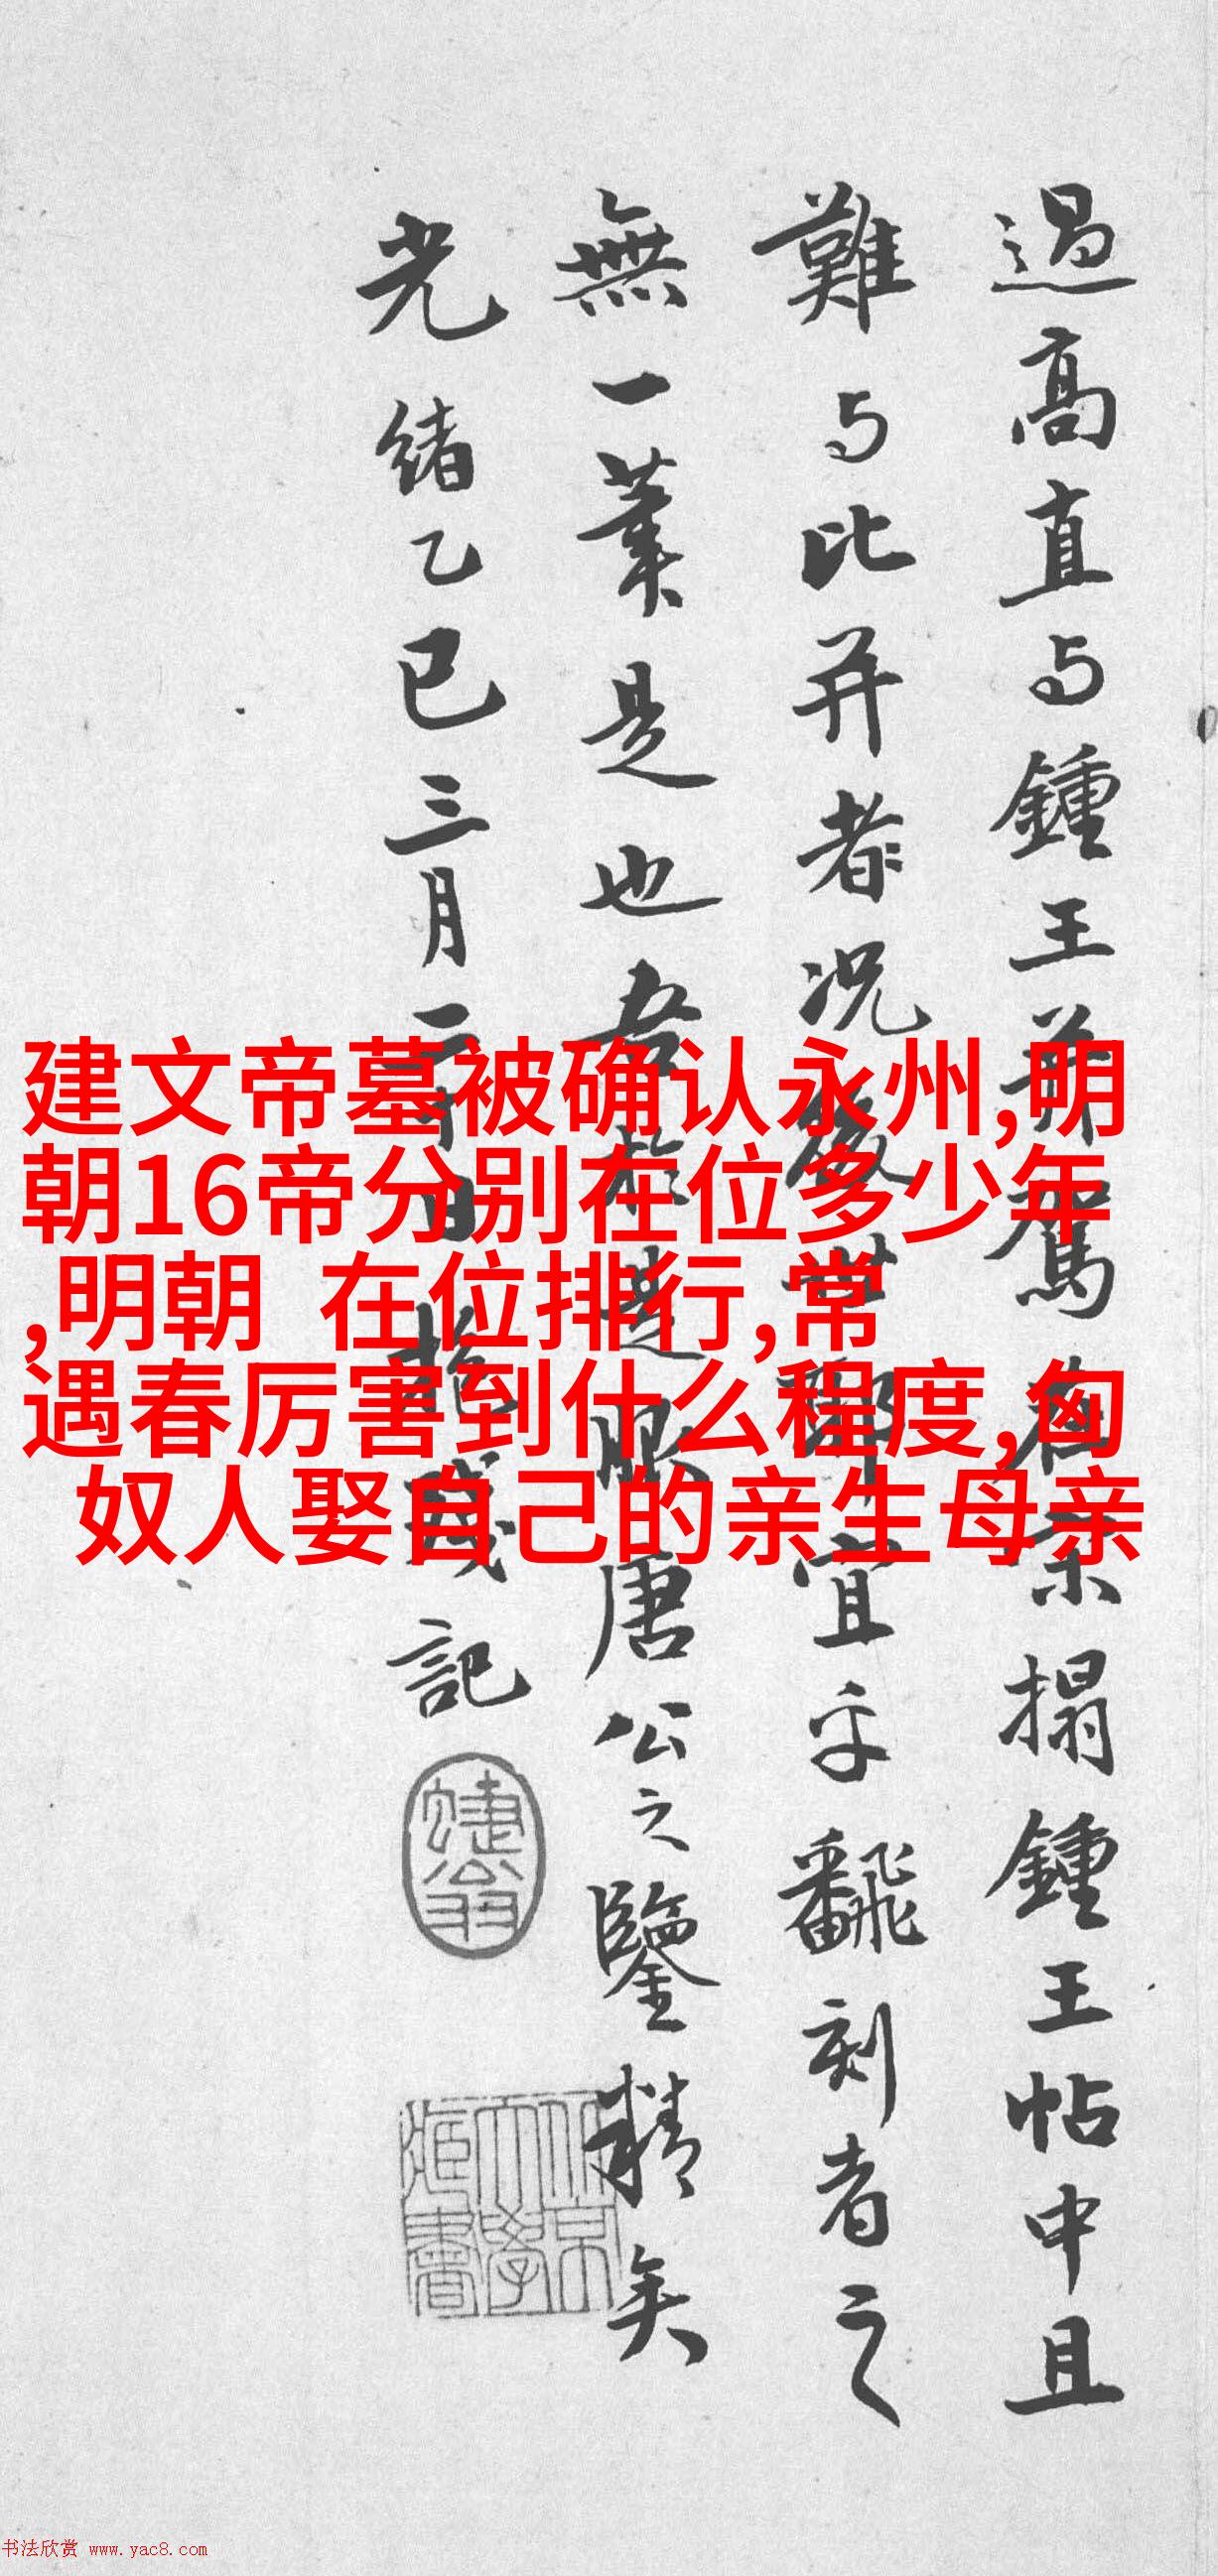 過高直与鍾王並駕
搨鍾王帖中且
難与比并者况
宜乎翻刻者之
無一葉是也吾於是服
唐公之鑒精矣
光緒乙巳三月二十日
記
建文帝墓被确认永州,明
朝16帝分别在位多少年
,明朝 在位排行,常
遇春厉害到什么程度,匈
奴人娶自己的亲生母亲
书法欣赏 www.yac8.com